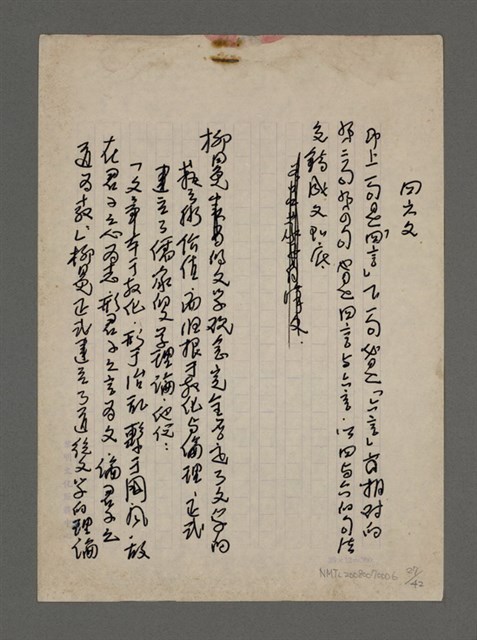 四六文
即上一句是「四言」下一句當是「六言」當相對的
第三句第四句當是四言與六言。以四与六的句法
交錯成文到底
柳冕表出的文学観念完全否定了文学的
藝術價值，而归根于教化与倫理，正式
建立了儒家的文学理論，他說：
「文章本于教化，形于治乱，繫于國风，故
在君子之心為志，形君子之言為文，論君子之
道為教。」柳冕正式建立了道統文学的理論
NMTL20080070006
42